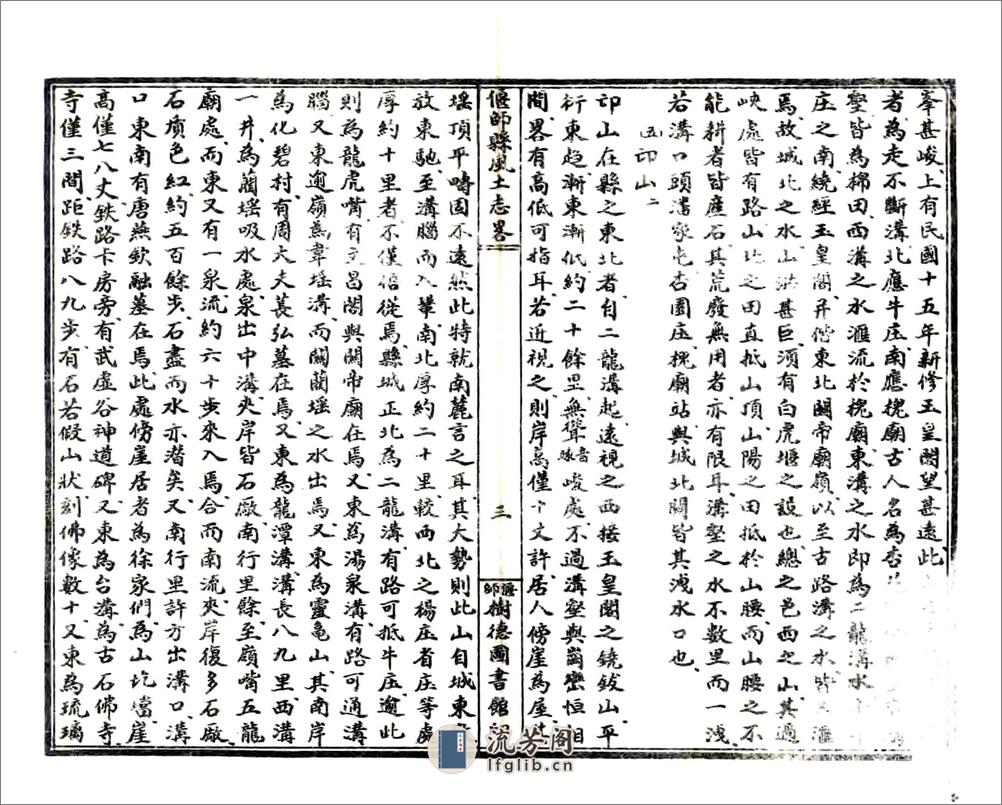 峯甚峻上有民國十五年新修玉皇閣望甚遠此
者為走不斷溝北應牛庄南應槐廟古人名為杏
壑皆為棉田西溝之水滙流於槐廟東溝之水即為二龍溝水
庄之南繞經玉皇閣并偕東北關帝廟嶺以至古路溝之水皆滙
焉故城北之水山洪甚巨須有白虎堰之設也總之邑西之山其過
峽處皆有路山北之田直抵山頂山陽之田抵於山腰而山腰之不
能耕者皆產石其荒廢無用者亦有限耳溝壑之水不數里而一淺
若溝口頭潘家屯杏園庄槐廟站與城北關皆其淺水口也
邙山二
邙山在縣之東北者自二龍溝起遠視之西接玉皇閣之鐃鈸山平
衍東趨漸東漸低約二十餘里無聳峻處不過溝壑與崗巒恒相
間畧有高低可指耳若近視之則岸高僅十丈許居人傍崖為屋
偃師縣風土志畧
三
偃師樹德圖書館印
堖頂平疇固不遠然此特就南麓言之耳其大勢則此山自城東
放東馳至溝腦而入鞏南北厚約二十里較西北之楊庄省庄等處
厚約十里者不僅倍蓰焉縣城正北為二龍溝有路可抵牛庄逾此
則為龍虎嘴有文昌閣與關帝廟在焉又東為湯泉溝有路可通溝
腦又東逾嶺為韋堖溝而關藺堖之水出焉又東為靈龜山其南岸
為化碧村有周大夫萇弘墓在焉又東為龍潭溝溝長八九里西溝
一井為藺堖吸水處泉出中溝夾岸皆石廠南行里餘至嶺嘴五龍
廟處而東又有一泉流約六十步來入焉合而南流夾岸復多石廠
石質色紅約五百餘步石盡而水亦潛矣又南行里許方出溝口溝
口東南有唐燕欽融墓在焉此處傍崖居者為徐家們為山圪壋崖
高僅七八丈鉄路卡房旁有武虛谷神道碑又東為台溝為古石佛寺
寺僅三間距鉄路八九步有石若假山狀刻佛像數十又東為琉璃
流芳阁
lfglib.cn